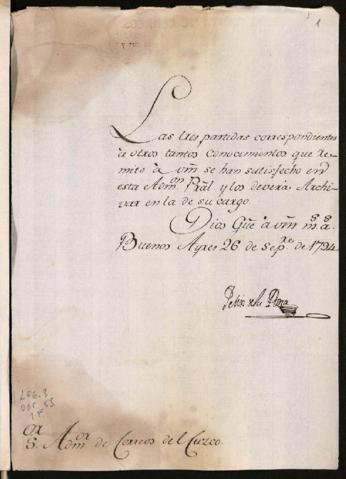 1
Las tres partidas correspondientes
à otros tantos Conocimientos que re-
mito à Vm̃ se han satisfecho en
esta Adm.on Pral y los deverá Archi-
var en la de su cargo.
Dios Gũe à Vm̃ m.s a.s
Buenos Ayres 26 de Sep.re de 1794.
Felix de la
LEG. 3
DOC. 55
S.or Adm.or de Correos del Cuzco.